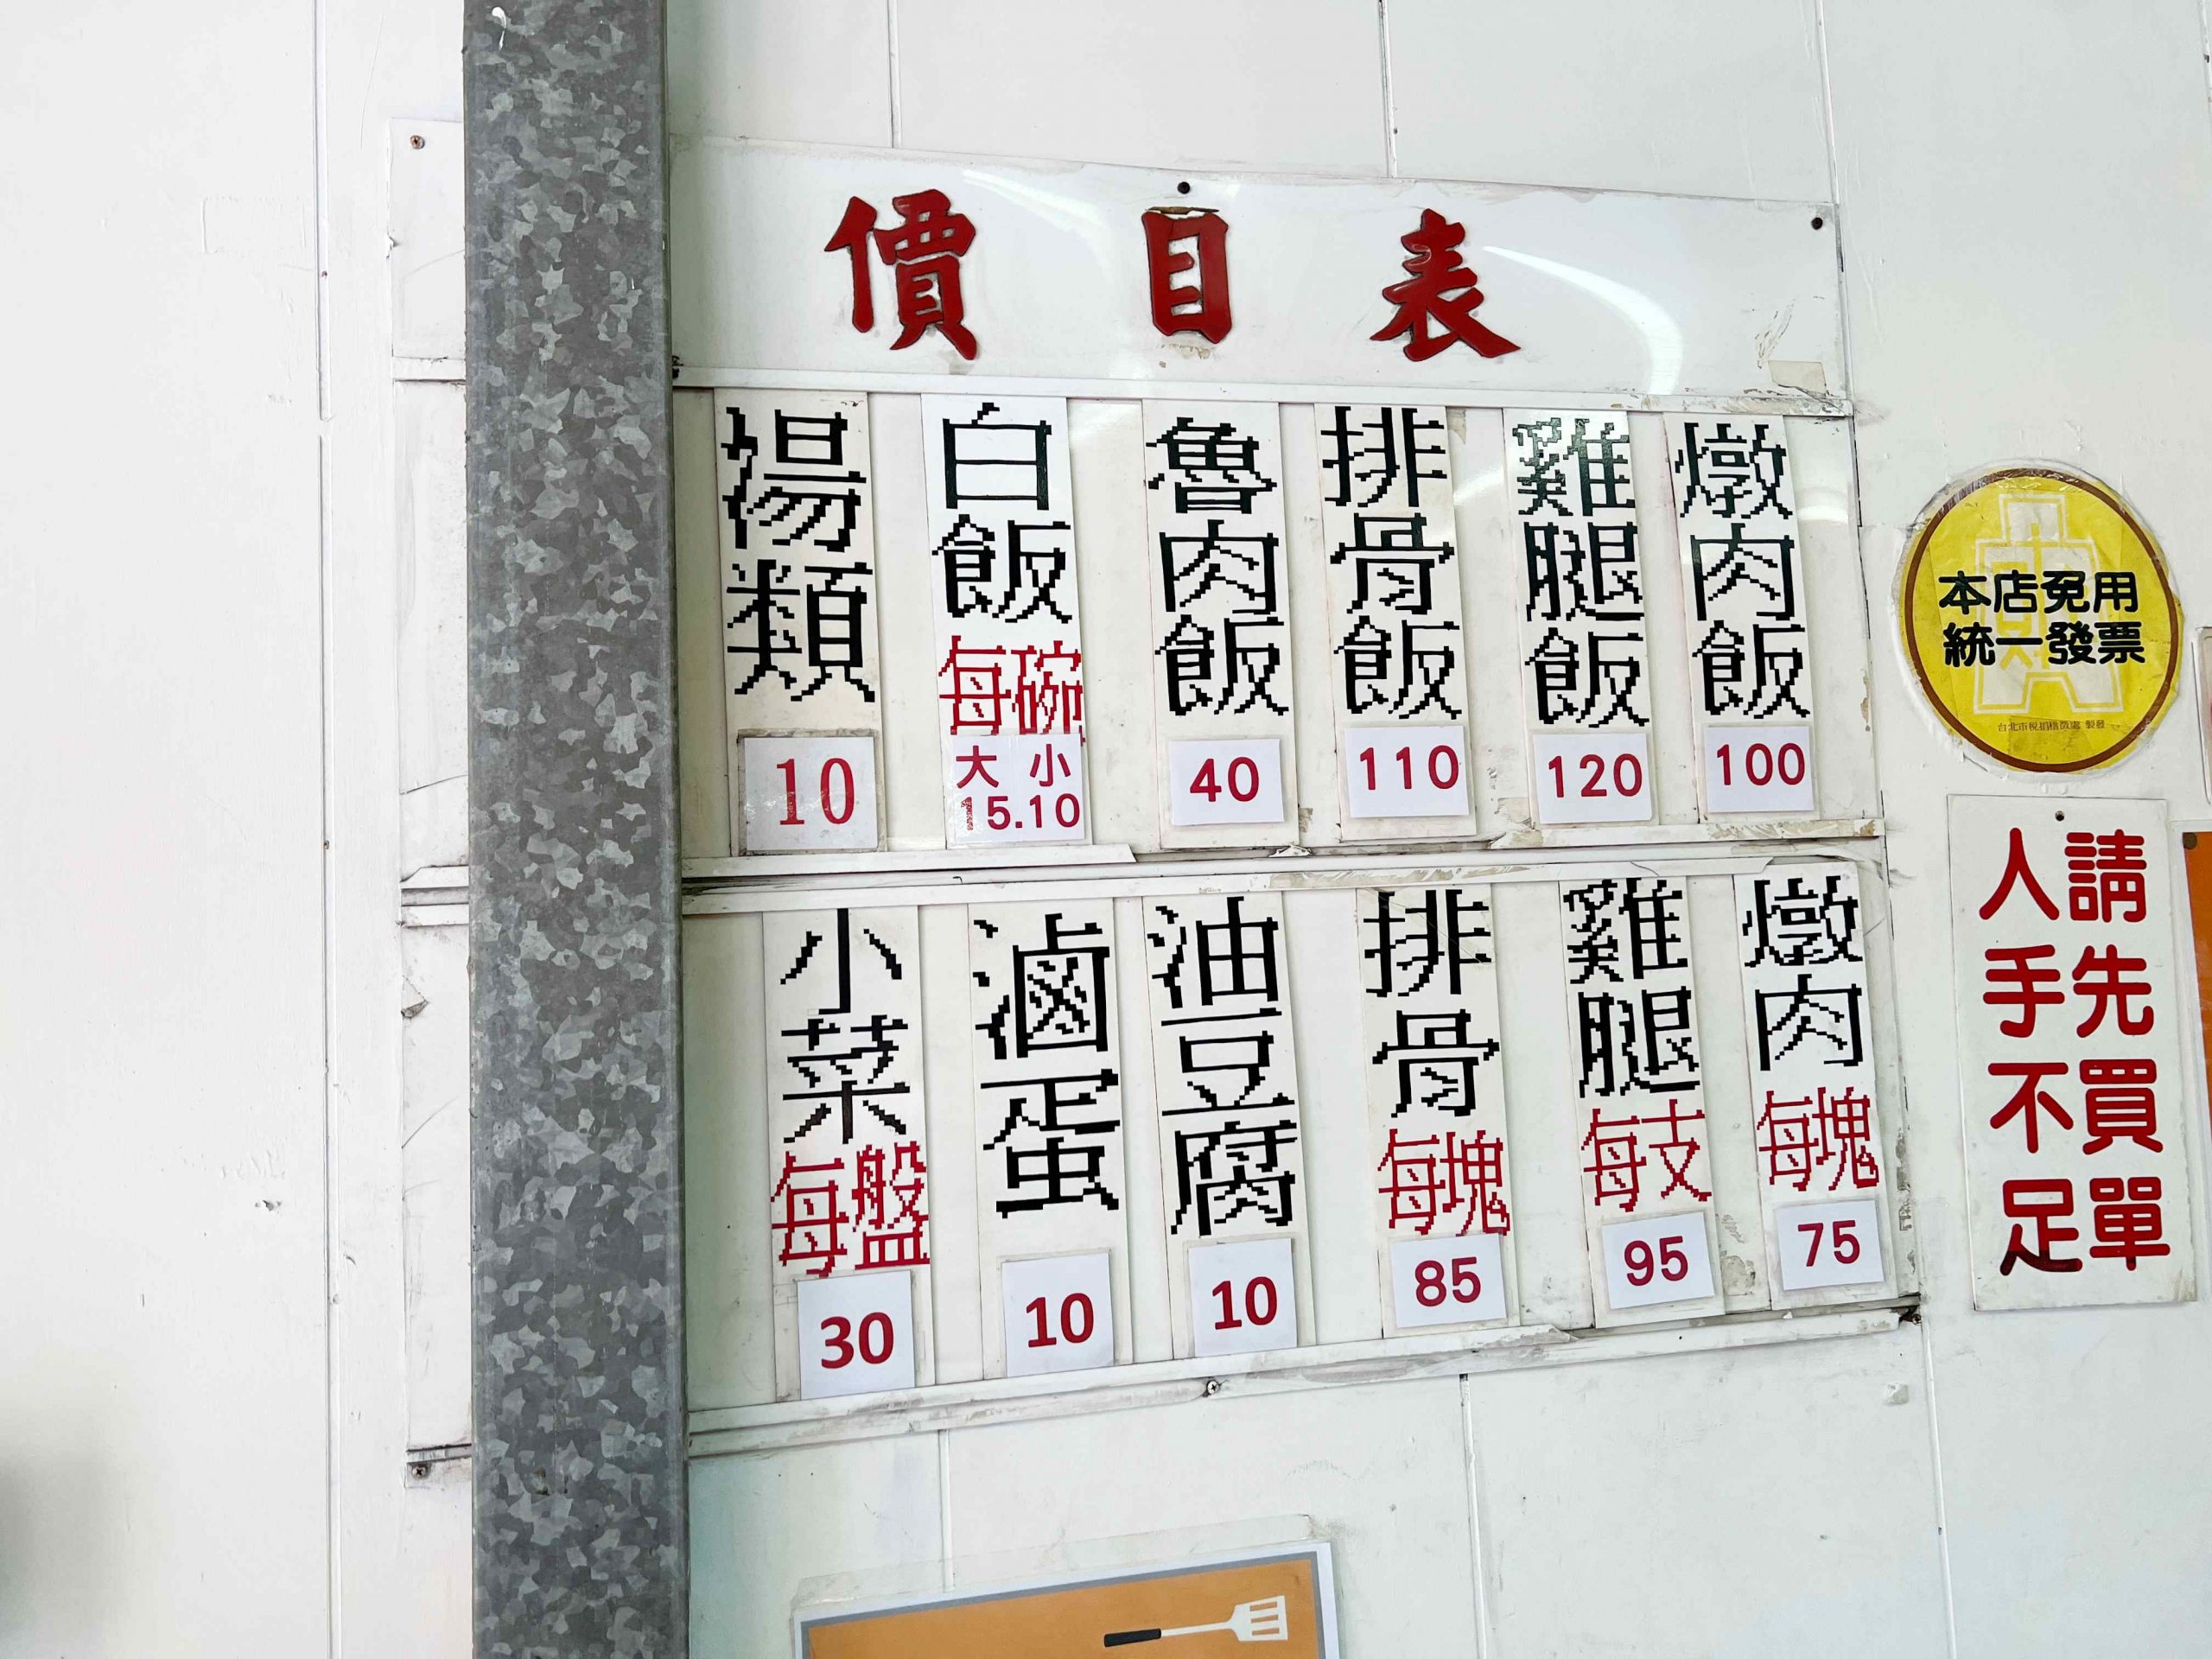 價目表
燉肉飯
100
雞腿飯
120
排骨飯
110
魯肉飯
40
白飯
每碗
大 小
15.10
湯類
10
燉肉
每塊
75
雞腿
每支
95
排骨
每塊
85
油豆腐
10
滷蛋
10
小菜
每盤
30
本店免用
統一發票
台北市稅捐稽徵處 製發
請先買單
人手不足